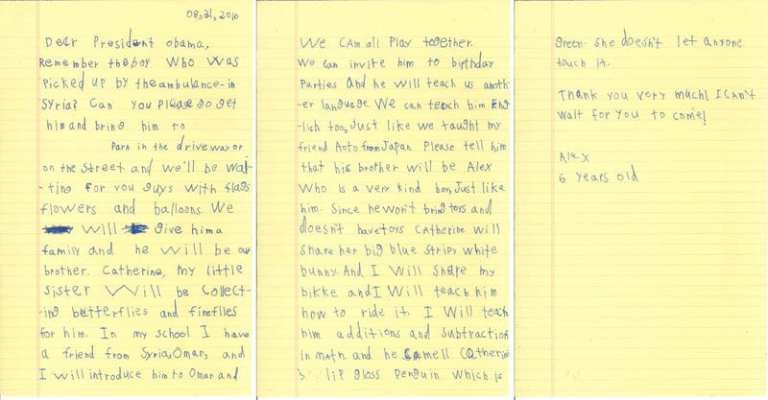 08,21,2016
Dear President obama,
Remember the boy who was
picked up by the ambulance in
Syria? Can you please go get
him and bring him to
Park in the driveway or
on the street and we'll be wai-
-ting for you guys with flags
flowers and balloons. We
will give him a
family and he will be our
brother. Catherine, my little
sister will be collect-
-ing butterflies and fireflies
for him. In my school I have
a friend from Syria, Omar, and
I will introduce him to Omar and
We can all play together.
We can invite him to birthday
parties and he will teach us anoth-
-er language. We can teach him Eng-
-lish too, Just like we taught my
friend Aoto from Japan. Please tell him
that his brother will be Alex
who is a very kind boy, Just like
him. Since he won't bring toys and
doesn't have toys Catherine will
share her big blue stripy white
bunny. And I will share my
bikke and I will teach him
how to ride it. I will teach
him additions and subtractions
in math and he smell Catherine
lip gloss penguin which is
green. She doesn't let anyone
touch it.
Thank you very much! I can't
wait for you to come!
Alex
6 years old